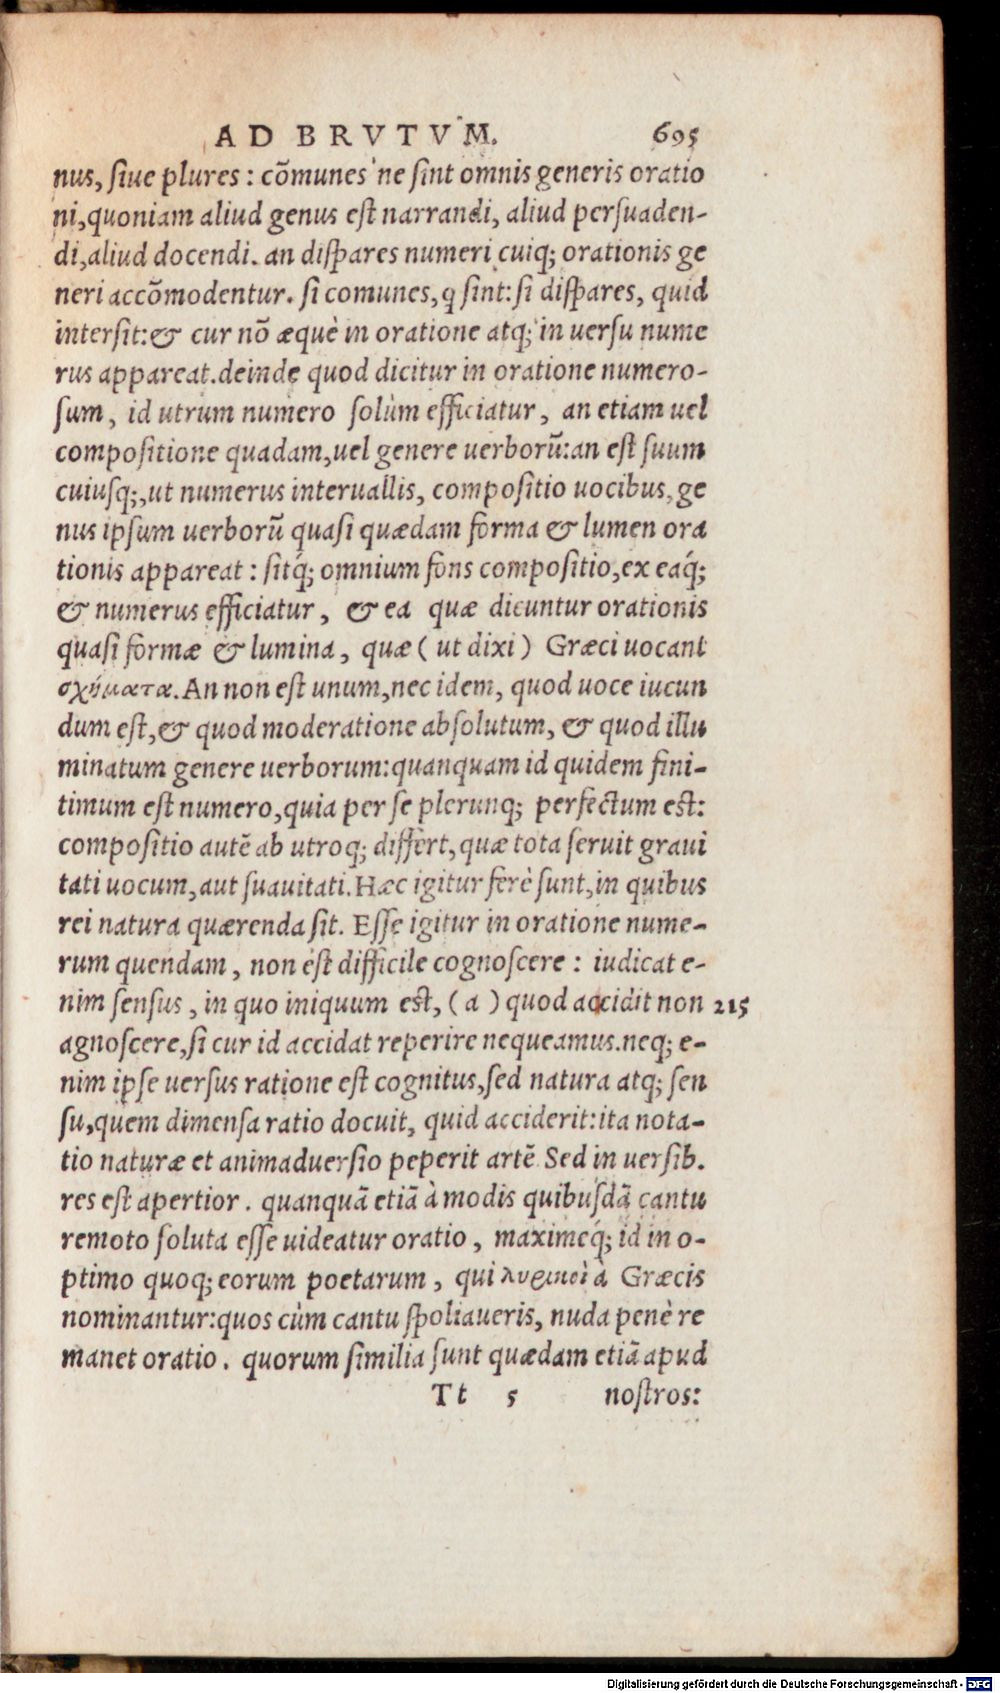 AD BRVTVM. 695
nus, siue plures: cõmunes'ne sint omnis generis oratio
ni, quoniam aliud genus est narrandi, aliud persuaden-
di, aliud docendi. an dispares numeri cuiq; orationis ge
neri accõmodentur. si comunes, q sint: si dispares, quid
intersit: & cur nõ æquè in oratione atq; in uersu nume
rus appareat. deinde quod dicitur in oratione numero-
sum, id utrum numero solùm efficiatur, an etiam uel
compositione quadam, uel genere uerborũ: an est suum
cuiusq;, ut numerus interuallis, compositio uocibus, ge
nus ipsum uerborũ quasi quædam forma & lumen ora
tionis appareat: sitq́; omnium fons compositio, ex eaq́;
& numerus efficiatur, & ea quæ dicuntur orationis
quasi formæ & lumina, quæ (ut dixi) Græci uocant
σχήματα. An non est unum, nec idem, quod uoce iucun
dum est, & quod moderatione absolutum, & quod illu
minatum genere uerborum: quanquam id quidem fini-
timum est numero, quia per se plerunq; perfectum est:
compositio autẽ ab utroq; differt, quæ tota seruit graui
tati uocum, aut suauitati. Hæc igitur ferè sunt, in quibus
rei natura quærenda sit. Esse igitur in oratione nume-
rum quendam, non est difficile cognoscere: iudicat e-
nim sensus, in quo iniquum est, (a) quod accidit non 215
agnoscere, si cur id accidat reperire nequeamus. neq; e-
nim ipse uersus ratione est cognitus, sed natura atq; sen
su, quem dimensa ratio docuit, quid acciderit: ita nota-
tio naturæ et animaduersio peperit artẽ Sed in uersib.
res est apertior. quanquã etiã à modis quibusdã cantu
remoto soluta esse uideatur oratio, maximeq́; id in o-
ptimo quoq; eorum poetarum, qui λυρικοὶ à Græcis
nominantur: quos cùm cantu spoliaueris, nuda penè re
manet oratio. quorum similia sunt quædam etiã apud
Tt 5 nostros:
Digitalisierung gefördert durch die Deutsche Forschungsgemeinschaft - DFG